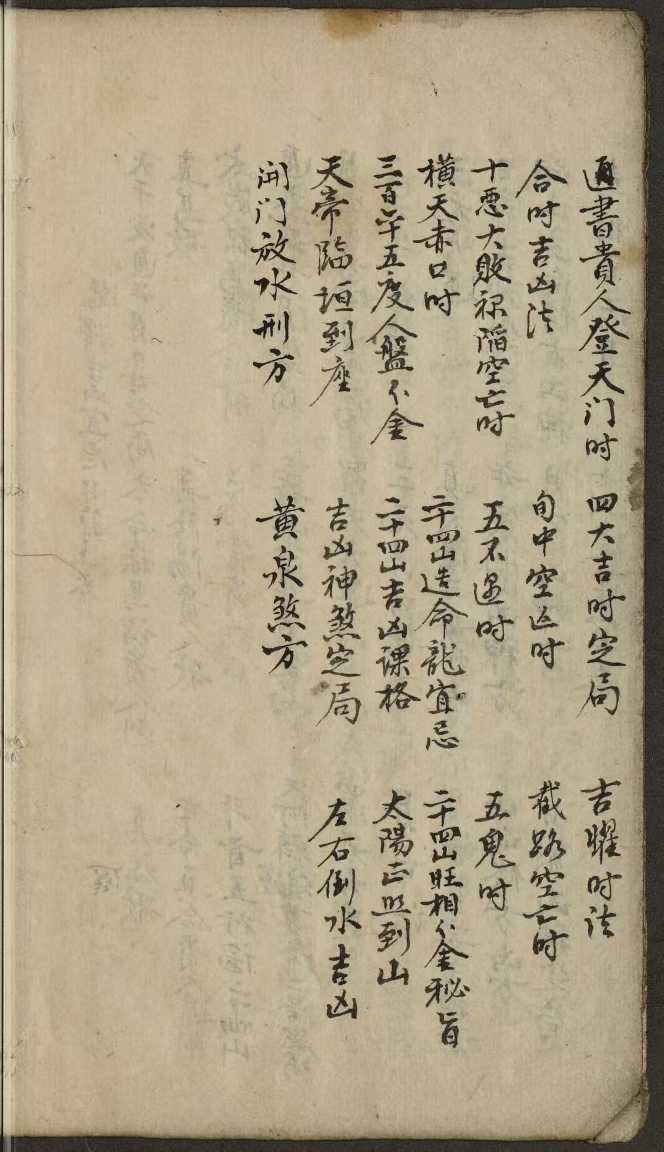 通書貴人登天门时 四大吉时定局 吉曜时法
合时吉凶法 旬中空亡时 截路空亡时
十悪大敗祿陷空亡时 五不遇时 五鬼时
橫天赤口时 二十四山造命龍宜忌 二十四山旺相分金秘旨
三百六十五度人盤分金 二十四山吉凶课格 太陽正照到山
天帝臨垣到座 吉凶神煞定局 左右倒水吉凶
開门放水刑方 黄泉煞方